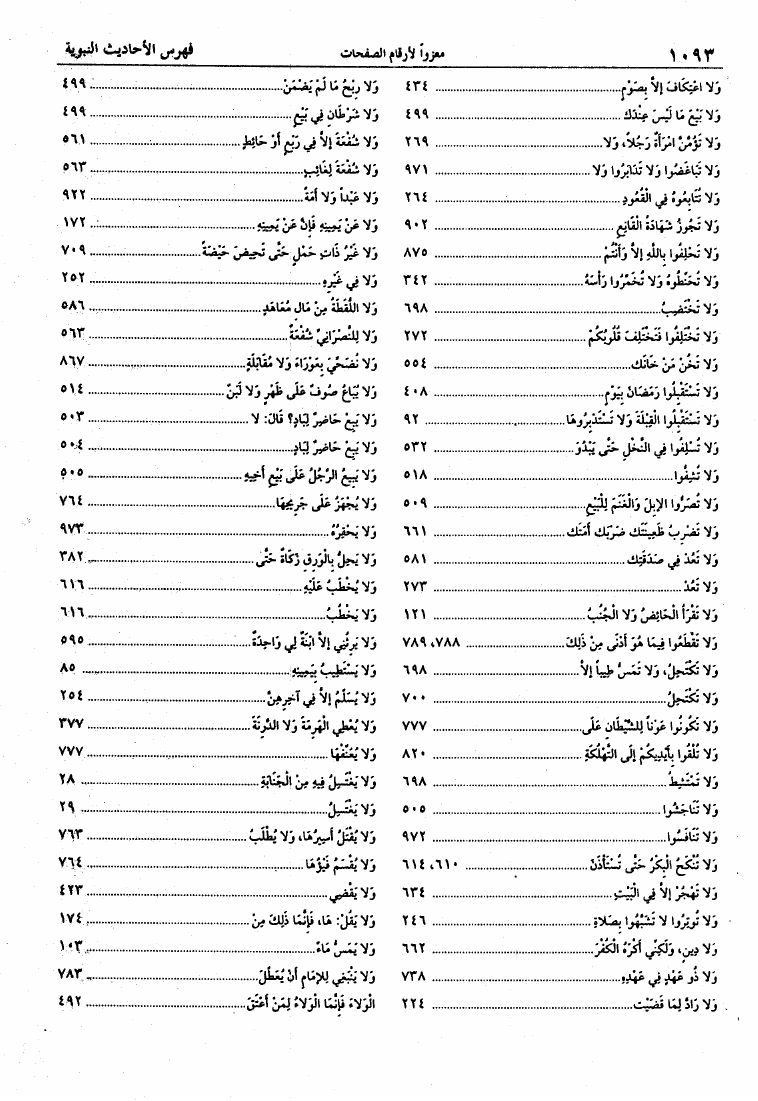 ١٠٩٣ معزواً لأرقام الصفحات فهرس الأحاديث النبوية
وَلا اعْتِكَافَ إلاَّ بِصَوْمٍ ٤٣٤
وَلا بَيْعَ مَا لَيْسَ عِنْدَكَ ٤٩٩
وَلا تَؤُمَّنَّ امْرَأَةٌ رَجُلاً، وَلا ٢٦٩
وَلا تَبَاغَضُوا وَلا تَدَابَرُوا وَلا ٩٧١
وَلا تُتَابِعُوهُ فِي الْقُعُودِ ٢٦٤
وَلا تَجُوزُ شَهَادَةُ الْقَانِعِ ٩٠٢
وَلا تَحْلِفُوا بِاللَّهِ إلاَّ وَأَنْتُمْ ٨٧٥
وَلا تُحَنِّطُوهُ وَلا تُخَمِّرُوا رَأْسَهُ ٣٤٢
وَلا تَخْتَضِبُ ٦٩٨
وَلا تَخْتَلِفُوا فَتَخْتَلِفَ قُلُوبُكُمْ ٢٧٢
وَلا تَخُنْ مَنْ خَانَكَ ٥٥٤
وَلا تَسْتَقْبِلُوا رَمَضَانَ بِيَوْمٍ ٤٠٨
وَلا تَسْتَقْبِلُوا الْقِبْلَةَ وَلا تَسْتَدْبِرُوهَا ٩٢
وَلا تُسْلِفُوا فِي النَّخْلِ حَتَّى يَبْدُوَ ٥٣٢
وَلا تُشِفُّوا ٥١٨
وَلا تُصَرُّوا الإبِلَ وَالْغَنَمَ لِلْبَيْعِ ٥٠٩
وَلا تَضْرِبْ ظَعِينَتَك ضَرْبَك أَمَتَك ٦٦١
وَلا تَعُدْ فِي صَدَقَتِك ٥٨١
وَلا تَعُدْ ٢٧٣
وَلا تَقْرَأُ الْحَائِضُ وَلا الْجُنُبُ ١٢١
وَلا تَقْطَعُوا فِيمَا هُوَ أَدْنَى مِنْ ذَلِكَ ٧٨٨، ٧٨٩
وَلا تَكْتَحِلُ، وَلا تَمَسُّ طِيباً إلاَّ ٦٩٨
وَلا تَكْتَحِلُ ٧٠٠
وَلا تَكُونُوا عَوْناً لِلشَّيْطَانِ عَلَى ٧٧٧
وَلا تُلْقُوا بِأَيْدِيكُمْ إلَى التَّهْلُكَةِ ٨٢٠
وَلا تَمْتَشِطُ ٦٩٨
وَلا تَنَاجَشُوا ٥٠٥
وَلا تَنَافَسُوا ٩٧٢
وَلا تُنْكَحُ الْبِكْرُ حَتَّى تُسْتَأْذَنَ ٦١٠، ٦١٤
وَلا تَهْجُرْ إلاَّ فِي الْبَيْتِ ٦٣٤
وَلا تُوتِرُوا لا تَشَبَّهُوا بِصَلاةِ ٢٤٦
وَلا دِينٍ، وَلَكِنِّي أَكْرَهُ الْكُفْرَ ٦٦٢
وَلا ذُو عَهْدٍ فِي عَهْدِهِ ٧٣٨
وَلا رَادَّ لِمَا قَضَيْت ٢٢٤
وَلا رِبْحُ مَا لَمْ يَضْمَنْ ٤٩٩
وَلا شَرْطَانِ فِي بَيْعٍ ٤٩٩
وَلا شُفْعَةَ إلاَّ فِي رَبْعٍ أَوْ حَائِطٍ ٥٦١
وَلا شُفْعَةَ لِغَائِبٍ ٥٦٣
وَلا عَبْداً وَلا أَمَةً ٩٢٢
وَلا عَنْ يَمِينِهِ فَإِنَّ عَنْ يَمِينِهِ ١٧٢
وَلا غَيْرُ ذَاتِ حَمْلٍ حَتَّى تَحِيضَ حَيْضَةً ٧٠٩
وَلا فِي غَيْرِهِ ٢٥٢
وَلا اللُّقَطَةُ مِنْ مَالِ مُعَاهَدٍ ٥٨٦
وَلا لِلنَّصْرَانِيِّ شُفْعَةٌ ٥٦٣
وَلا نُضَحِّيَ بِعَوْرَاءَ وَلا مُقَابَلَةٍ ٨٦٧
وَلا يُبَاعُ صُوفٌ عَلَى ظَهْرٍ وَلا لَبَنٌ ٥١٤
وَلا يَبِعْ حَاضِرٌ لِبَادٍ؟ قَالَ: لا ٥٠٣
وَلا يَبِعْ حَاضِرٌ لِبَادٍ ٥٠٤
وَلا يَبِيعُ الرَّجُلُ عَلَى بَيْعِ أَخِيهِ ٥٠٥
وَلا يُجْهَزُ عَلَى جَرِيحِهَا ٧٦٤
وَلا يَحْقِرُهُ ٩٧٣
وَلا يَحِلُّ بِالْوَرِقِ زَكَاةٌ حَتَّى ٣٨٢
وَلا يُخْطَبُ عَلَيْهِ ٦١٦
وَلا يَخْطُبُ ٦١٦
وَلا يَرِثُنِي إلاَّ ابْنَةٌ لِي وَاحِدَةٌ ٥٩٥
وَلا يَسْتَطِيبُ بِيَمِينِهِ ٨٥
وَلا يُسَلِّمُ إلاَّ فِي آخِرِهِنَّ ٢٥٤
وَلا يُعْطِي الْهَرِمَةَ وَلا الدَّرِنَةَ ٣٧٧
وَلا يُعَنِّفْهَا ٧٧٧
وَلا يَغْتَسِلُ فِيهِ مِنْ الْجَنَابَةِ ٢٨
وَلا يَغْتَسِلُ ٢٩
وَلا يُقْتَلُ أَسِيرُهَا، وَلا يُطْلَبُ ٧٦٣
وَلا يُقْسَمُ فَيْؤُهَا ٧٦٤
وَلا يَقْضِي ٤٢٣
وَلا يَقُلْ: هَا، فَإِنَّمَا ذَلِكَ مِنْ ١٧٤
وَلا يَمَسُّ مَاءً ١٠٣
وَلا يَنْبَغِي لِلإمَامِ أَنْ يُعَطِّلَ ٧٨٣
الْوَلاءَ فَإِنَّمَا الْوَلاءُ لِمَنْ أَعْتَقَ ٤٩٢